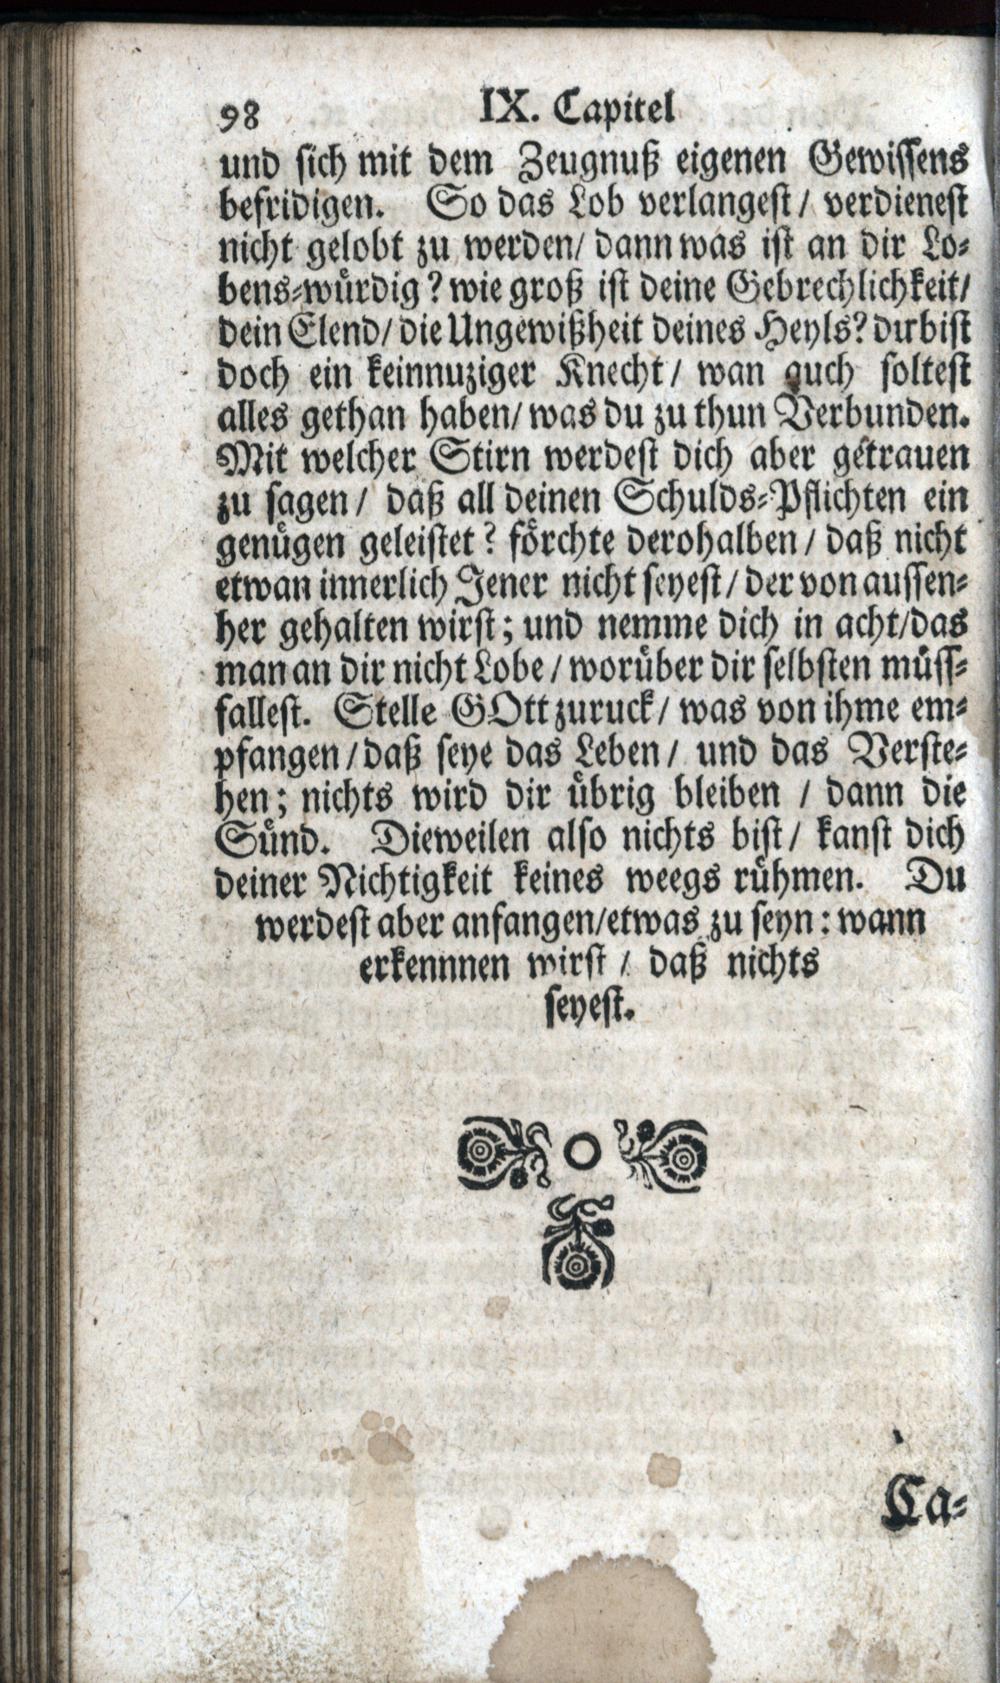 98 IX. Capitel
und sich mit dem Zeugnuß eigenen Gewissens
befridigen. So das Lob verlangest / verdienest
nicht gelobt zu werden / dann was ist an dir Lo-
bens-würdig ? wie groß ist deine Gebrechlichkeit /
dein Elend / die Ungewißheit deines Heyls? du bist
doch ein keinnuziger Knecht / wan auch soltest
alles gethan haben / was du zu thun Verbunden.
Mit welcher Stirn werdest dich aber getrauen
zu sagen / daß all deinen Schulds-Pflichten ein
genügen geleistet ? förchte derohalben / daß nicht
etwan innerlich Jener nicht seyest / der von aussen-
her gehalten wirst ; und nemme dich in acht / das
man an dir nicht Lobe / worüber dir selbsten müss-
fallest. Stelle GOtt zuruck / was von ihme em-
pfangen / daß seye das Leben / und das Verste-
hen ; nichts wird dir übrig bleiben / dann die
Sünd. Dieweilen also nichts bist / kanst dich
deiner Nichtigkeit keines weegs rühmen. Du
werdest aber anfangen / etwas zu seyn : wann
erkennnen wirst / daß nichts
seyest.
Ca-